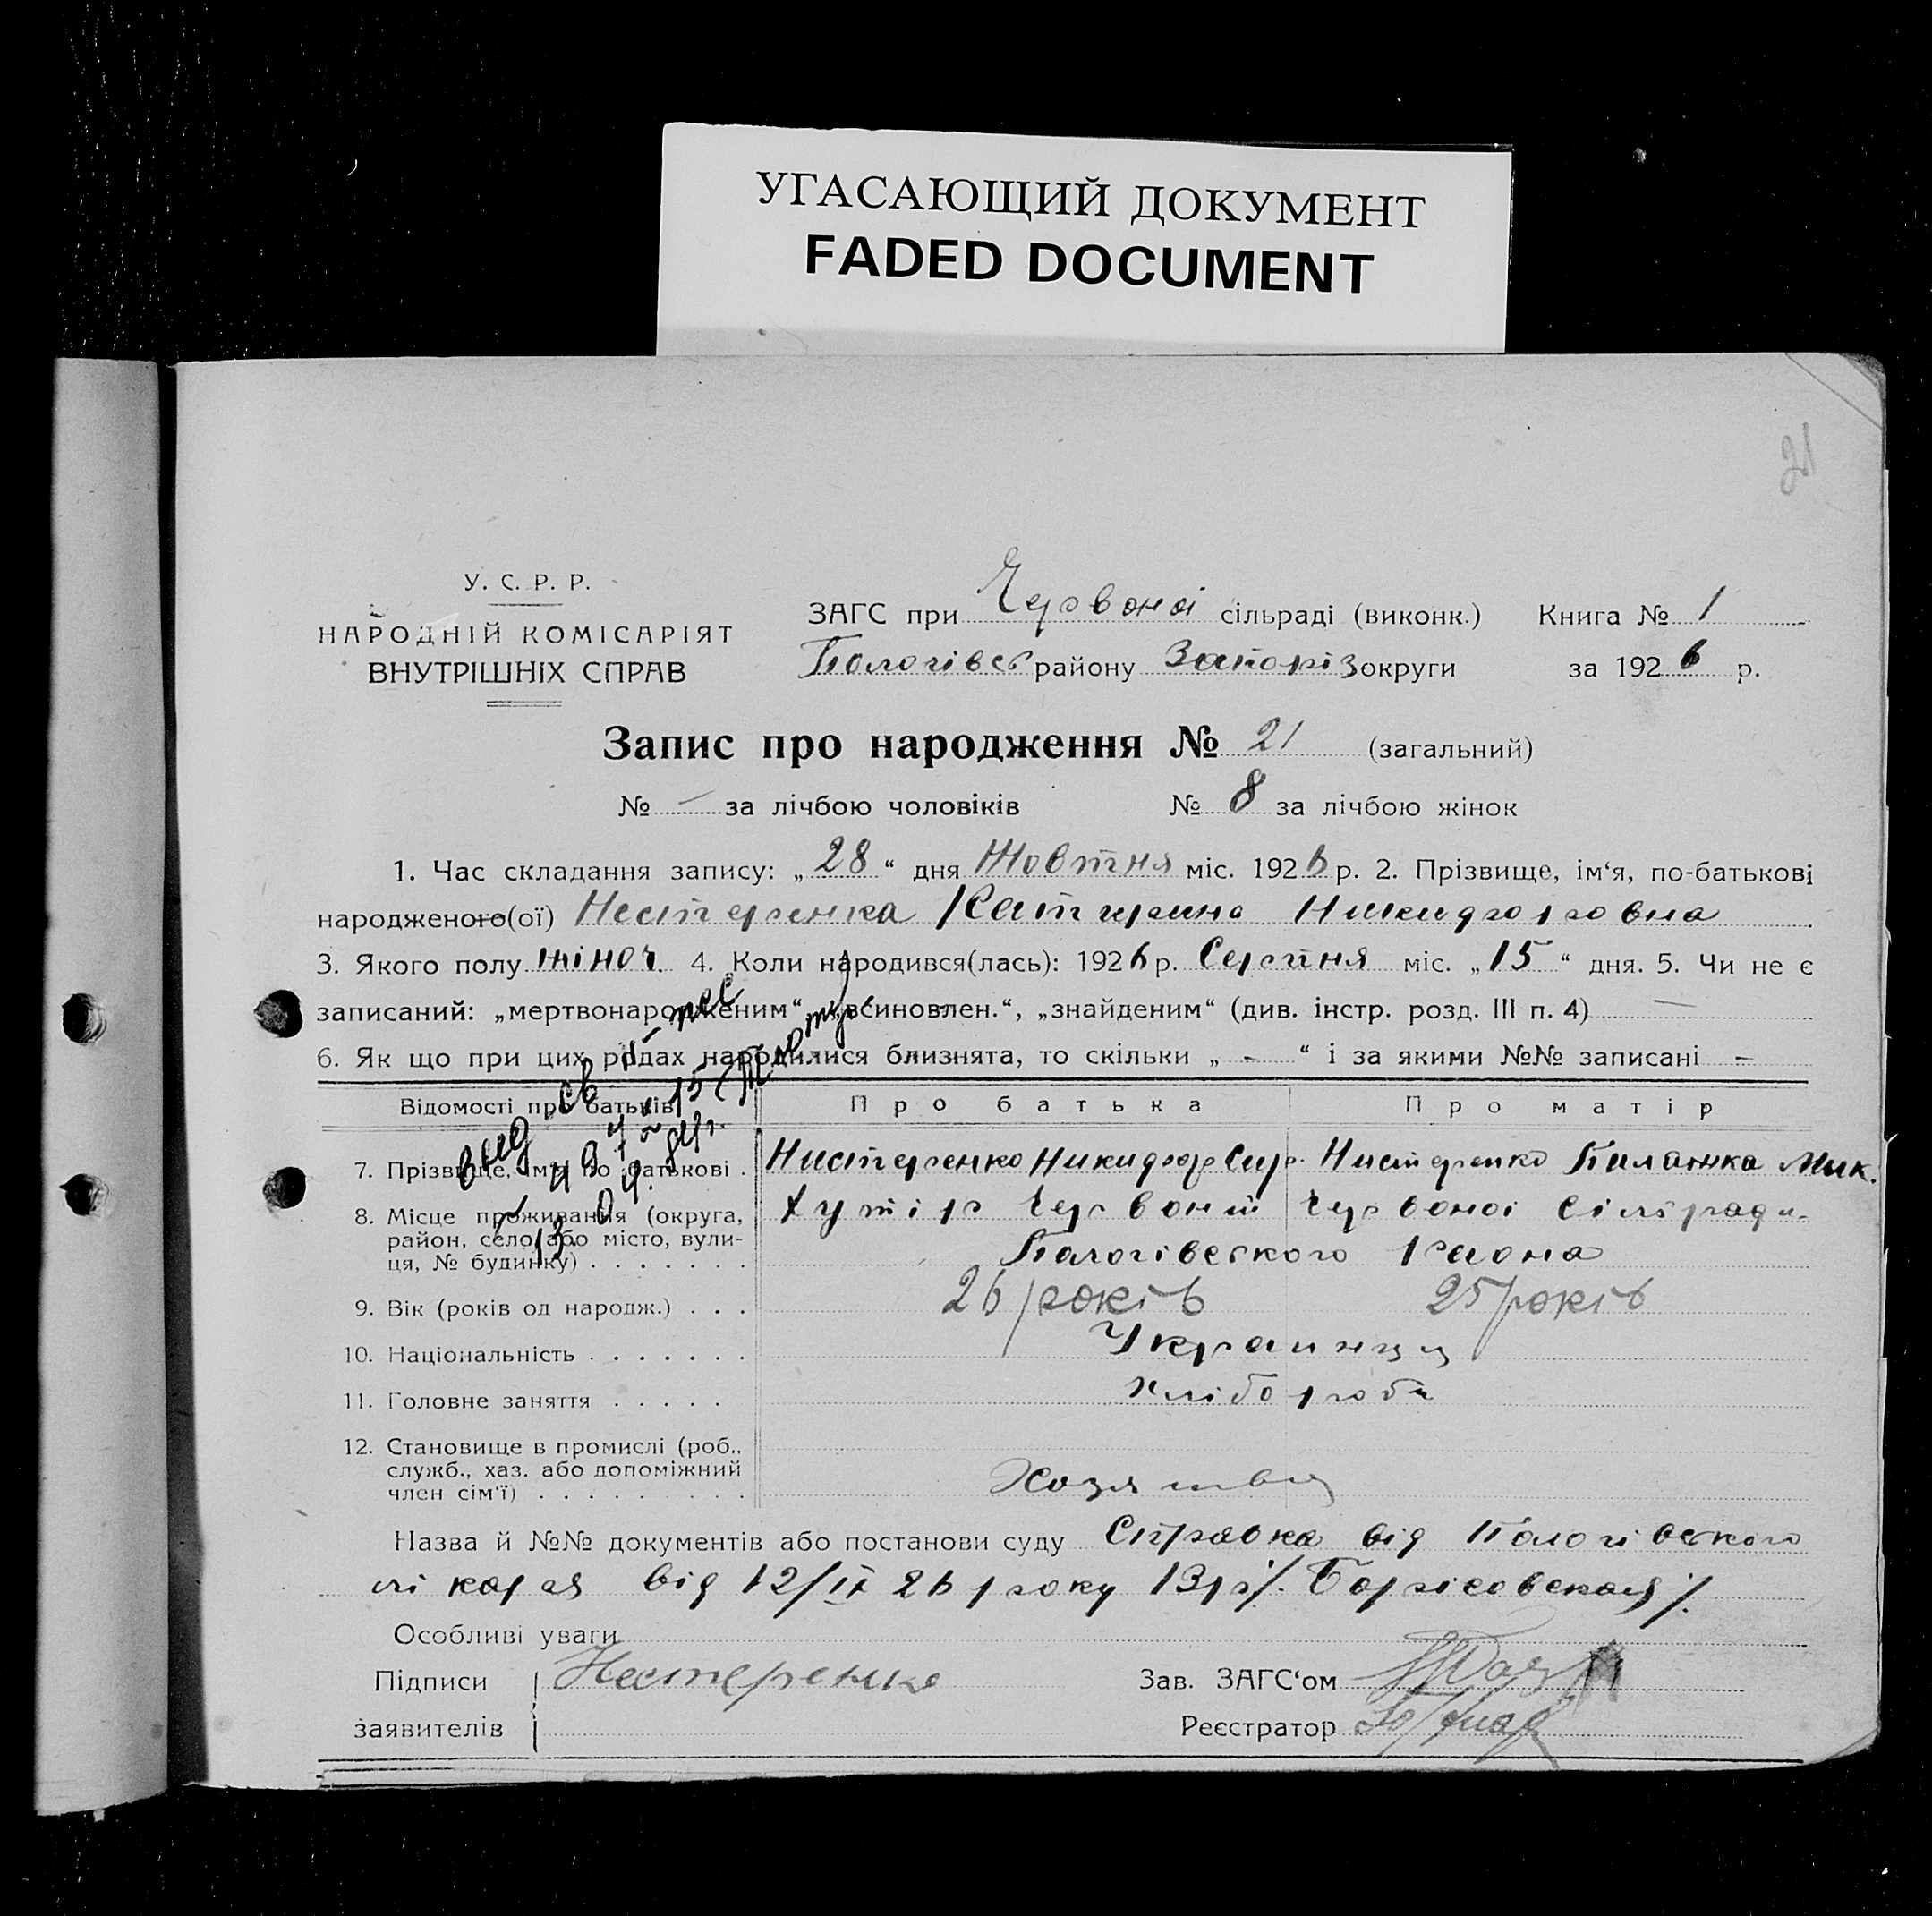 УГАСАЮЩИЙ ДОКУМЕНТ
FADED DOCUMENT
21
У. С. Р. Р.
НАРОДНІЙ КОМІСАРІЯТ
ВНУТРІШНІХ СПРАВ
ЗАГС при Червоної сільраді (виконк.) Книга № 1
Пологівсь району Запоріз округи за 1926 р.
Запис про народження № 21 (загальний)
№ – за лічбою чоловіків № 8 за лічбою жінок
1. Час складання запису: „28“ дня Жовтня міс. 1926 р. 2. Прізвище, ім‘я, по-батькові
народженого(ої) Нестеренка Катерина Никифоровна
3. Якого полу жіноч. 4. Коли народився(лась): 1926 р. Серпня міс. „15“ дня. 5. Чи не є
записаний: „мертвонародженим“, „всиновлен.“, „знайденим“ (див. інстр. розд. III п. 4) —
6. Як що при цих родах народилися близнята, то скільки „ - “ і за якими №№ записані –
Відомості про батьків Про батька Про матір
7. Прізвище, ім‘я по батькові . Нистеренко Никифор Нистеренко Пилажка Мик.
8. Місце проживання (округа, Хутір Червоний Червоної Сільради
район, село або місто, вули- Пологівського района
ця, № будинку) . . . . . . .
9. Вік (років од народж.) . . . 26 років 25 років
10. Національність . . . . . . . Украинци
11. Головне заняття . . . . . Хлібороби
12. Становище в промислі (роб.,
служб., хаз. або допоміжний
член сім‘ї) . . . . . . . . . Хозя
Назва й №№ документів або постанови суду Справка від Пологівського
лікаря від 12/IX 26 року Борісовская/.
Особливі уваги
Підписи Нестеренко Зав. ЗАГС‘ом
заявителів Реєстратор